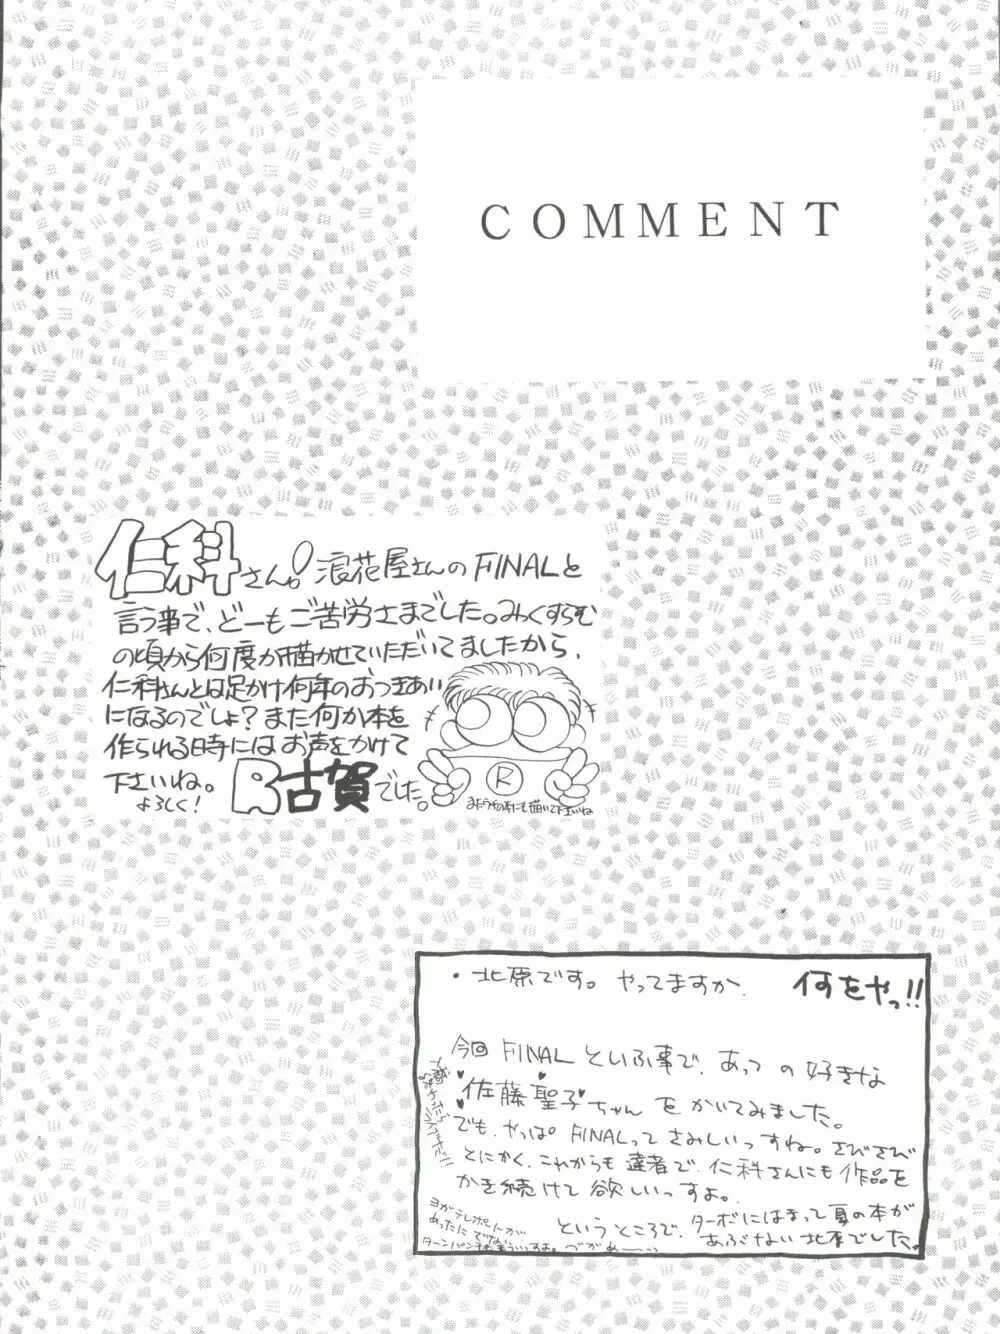 COMMENT
仁科さん。! 浪花屋さんのFINALと
言う事で、どーもご苦労さまでした。みっくすらむ
の頃から何度か描かせていただいてましたから、
仁科さんとは足かけ何年のおつきあい
になるのでしょ?また何か本を
作られる時にはお声をかけて
下さいね。
よろしく!
R古賀でした。
R
・北原です。やってますか。
何をやっ!!
今回FINALといふ事で、あっつの好きな
佐藤聖子ちゃんをかいてみました。
でも、やっぱFINALってさみしいっすね。さびさび
とにかく、これからも達者で、仁科さんにも作品を
かき続けて欲しいっすよ。
というところで、ターボにはまって夏の本が
あぶない北原でした。
ヨガテレポートが
あったにでない